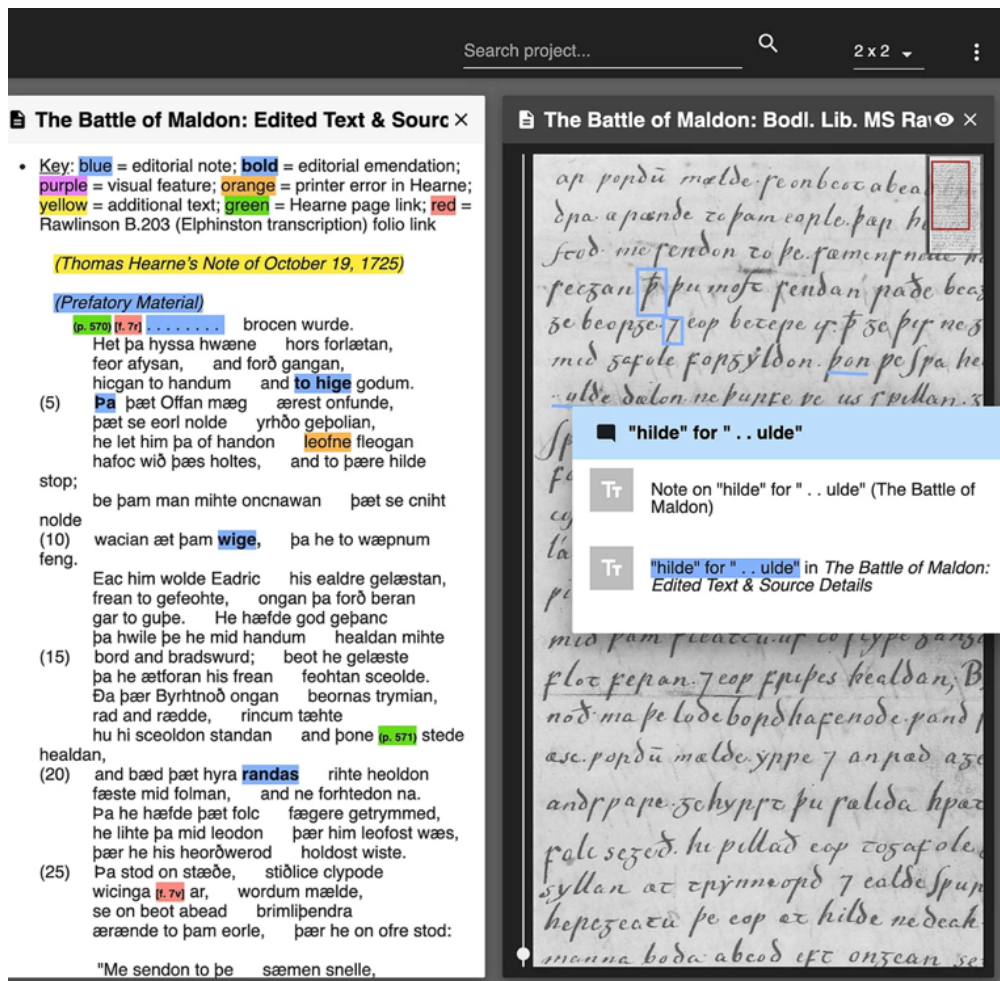 Search project...
2 x 2
The Battle of Maldon: Edited Text & Sourc
• Key: blue = editorial note; bold = editorial emendation;
purple = visual feature; orange = printer error in Hearne;
yellow = additional text; green = Hearne page link; red =
Rawlinson B.203 (Elphinston transcription) folio link
(Thomas Hearne's Note of October 19, 1725)
(Prefatory Material)
(p. 570) [f. 7r] . . . . . . . . brocen wurde.
Het þa hyssa hwæne hors forlætan,
feor afysan, and forð gangan,
hicgan to handum and to hige godum.
(5) Þa þæt Offan mæg ærest onfunde,
þæt se eorl nolde yrhðo geþolian,
he let him þa of handon leofne fleogan
hafoc wið þæs holtes, and to þære hilde
stop;
be þam man mihte oncnawan þæt se cniht
nolde
(10) wacian æt þam wige, þa he to wæpnum
feng.
Eac him wolde Eadric his ealdre gelæstan,
frean to gefeohte, ongan þa forð beran
gar to guþe. He hæfde god geþanc
þa hwile þe he mid handum healdan mihte
(15) bord and bradswurd; beot he gelæste
þa he ætforan his frean feohtan sceolde.
Ða þær Byrhtnoð ongan beornas trymian,
rad and rædde, rincum tæhte
hu hi sceoldon standan and þone (p. 571) stede
healdan,
(20) and bæd þæt hyra randas rihte heoldon
fæste mid folman, and ne forhtedon na.
Þa he hæfde þæt folc fægere getrymmed,
he lihte þa mid leodon þær him leofost wæs,
þær he his heorðwerod holdost wiste.
(25) Þa stod on stæðe, stiðlice clypode
wicinga [f. 7v] ar, wordum mælde,
se on beot abead brimliþendra
ærænde to þam eorle, þær he on ofre stod:
"Me sendon to þe sæmen snelle,
The Battle of Maldon: Bodl. Lib. MS Ra
ar ƿordū mælde. se on beot abea
stod. me sendon to þe. sæmen
secgan ꝥ þu most sendan raðe bea
ge beorge. ⁊ eop betere is. ꝥ ge þis
mid gafole forgyldon. þon ƿe spa he
ulde dælon. ne þurfe ƿe us spillan.
"hilde" for " . . ulde"
Note on "hilde" for " . . ulde" (The Battle of
Maldon)
"hilde" for " . . ulde" in The Battle of Maldon:
Edited Text & Source Details
flot feran. ⁊ eoƿ friþes healdan; B
noð maþelode bord hafenode. ƿand
æsc. ƿordū mælde. yrre ⁊ anræd
andsƿare. gehyrst þu sælida hƿæt
folc segeð. hi ƿillað eoƿ to gafole
syllan ættrynne ord ⁊ ealde spur
heregeatu þe eoƿ æt hilde ne deah
manna boda abeod eft ongean se